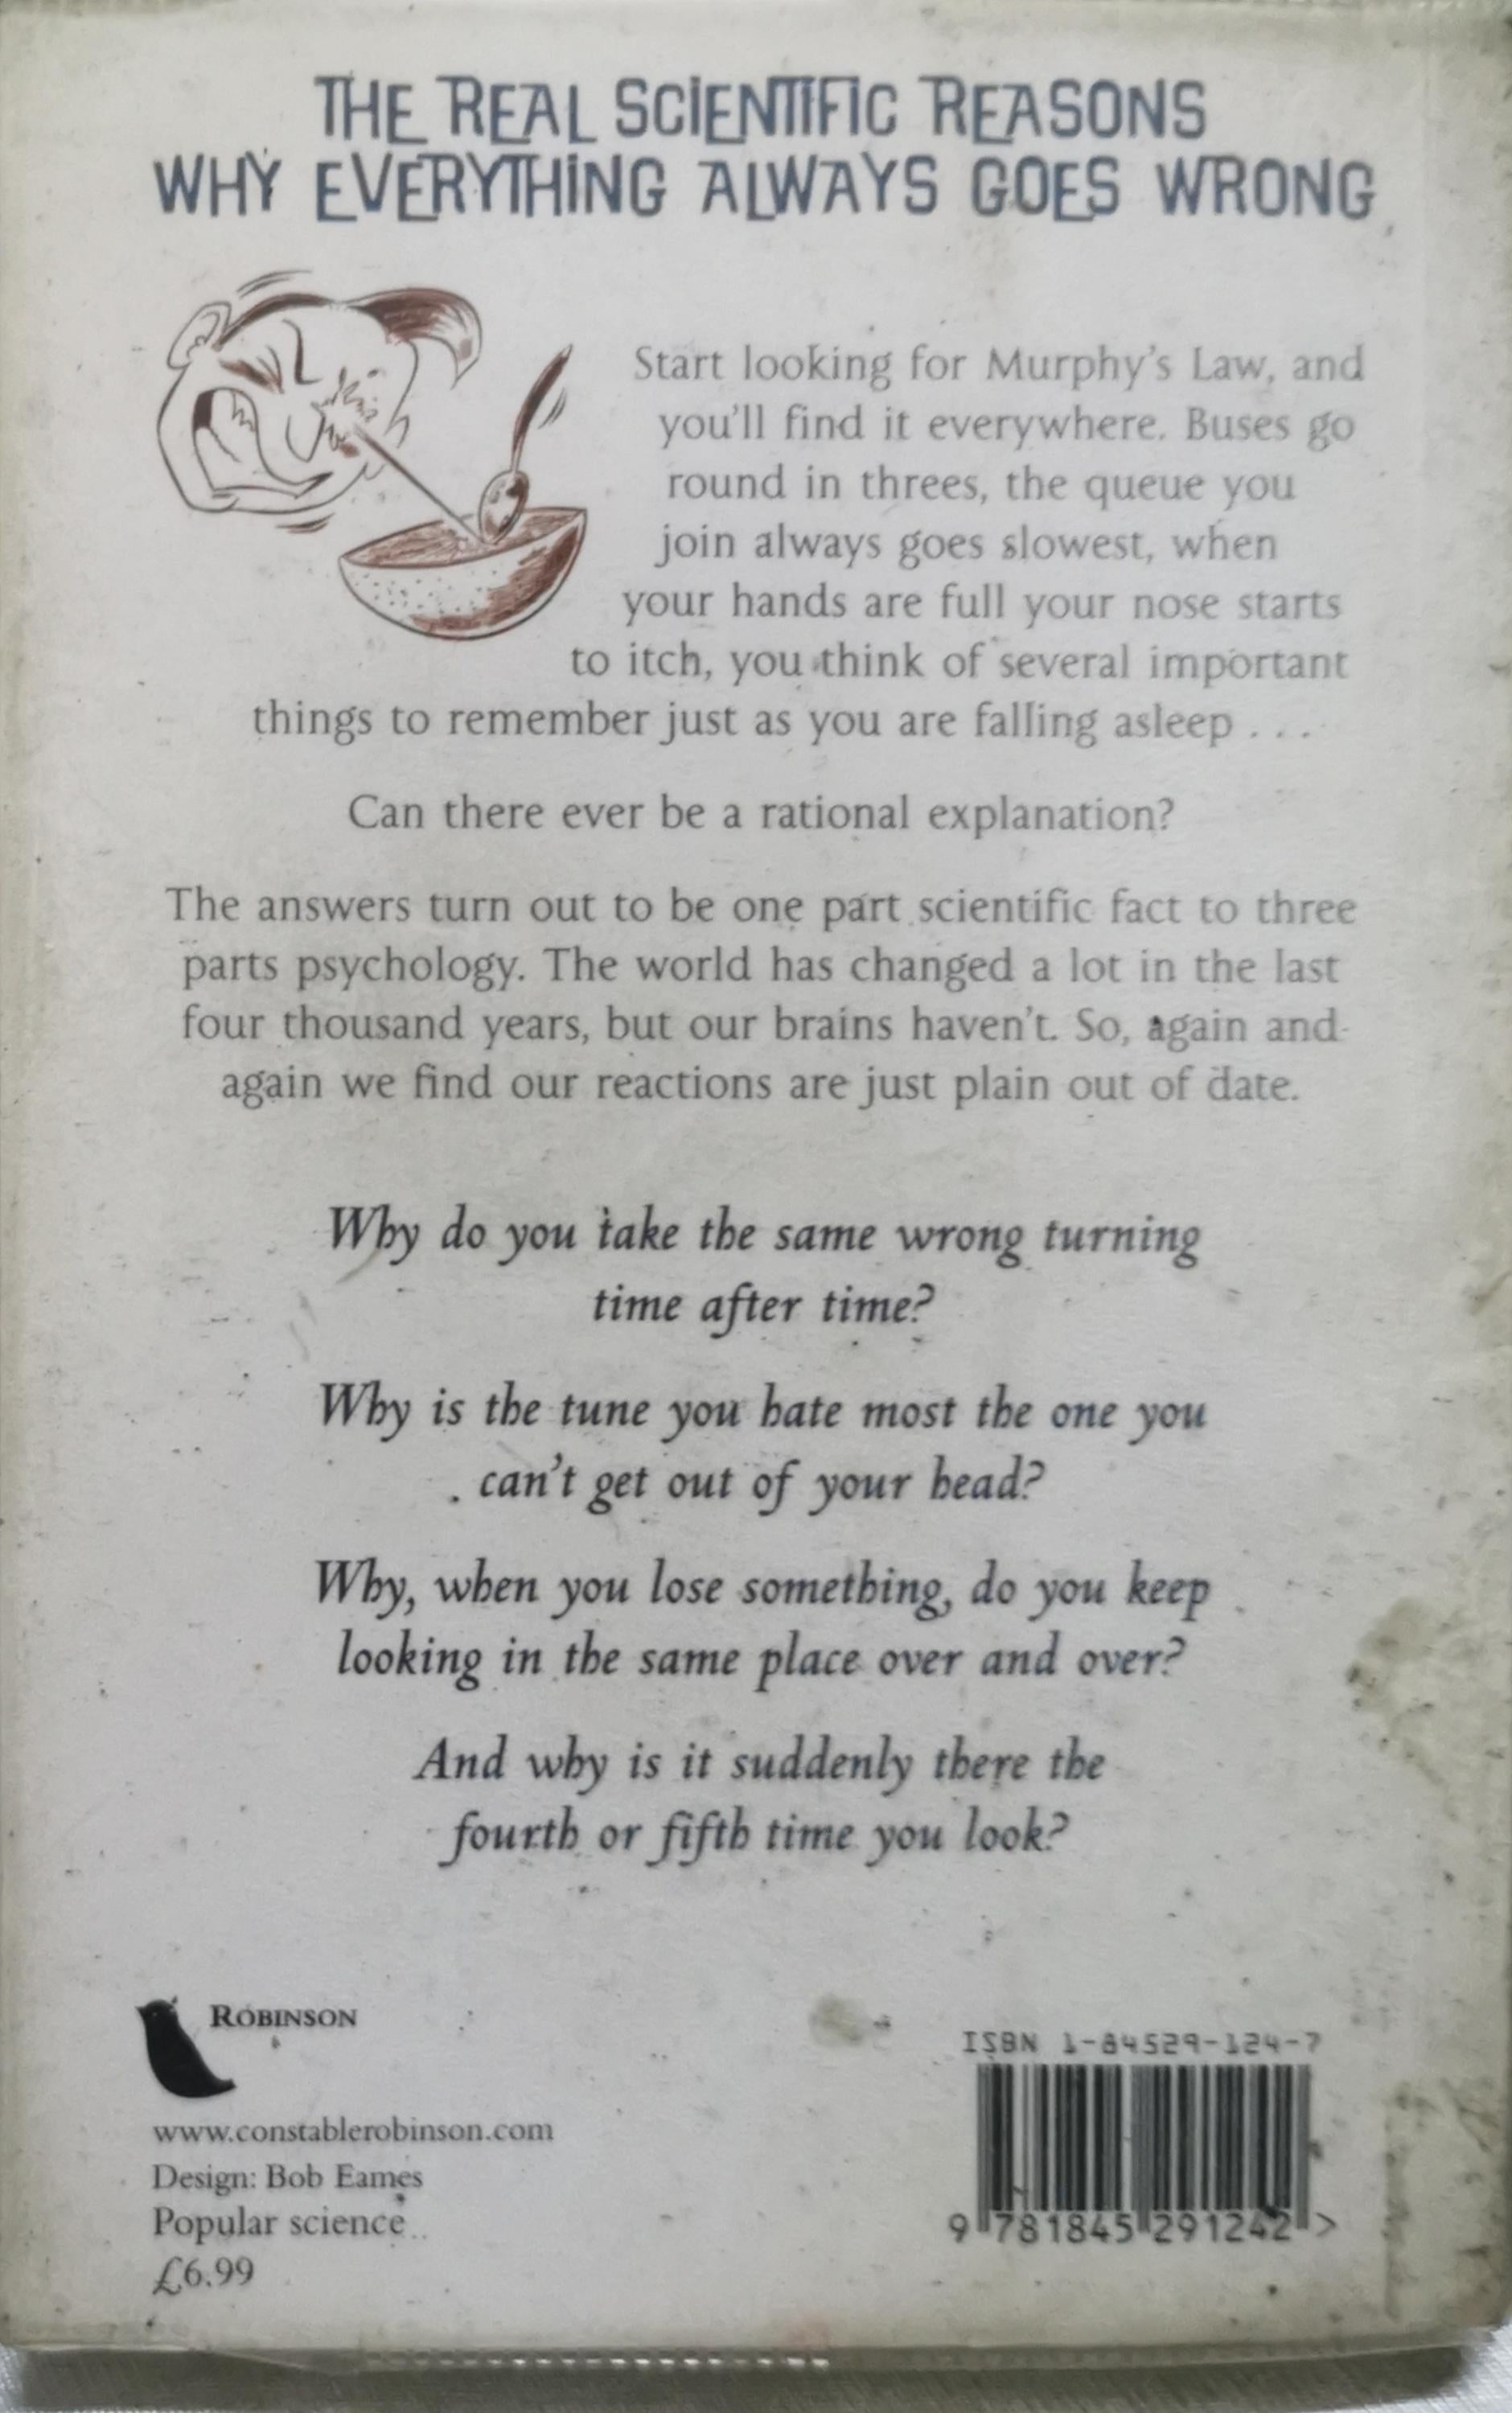 THE REAL SCIENTIFIC REASONS
WHY EVERYTHING ALWAYS GOES WRONG
Start looking for Murphy's Law, and
you'll find it everywhere. Buses go
round in threes, the queue you
join always goes slowest, when
your hands are full your nose starts
to itch, you think of several important
things to remember just as you are falling asleep . . .
Can there ever be a rational explanation?
The answers turn out to be one part scientific fact to three
parts psychology. The world has changed a lot in the last
four thousand years, but our brains haven't. So, again and
again we find our reactions are just plain out of date.
Why do you take the same wrong turning
time after time?
Why is the tune you hate most the one you
can't get out of your head?
Why, when you lose something, do you keep
looking in the same place over and over?
And why is it suddenly there the
fourth or fifth time you look?
ROBINSON
www.constablerobinson.com
Design: Bob Eames
Popular science
£6.99
ISBN 1-84529-124-7
9 781845 291242 >